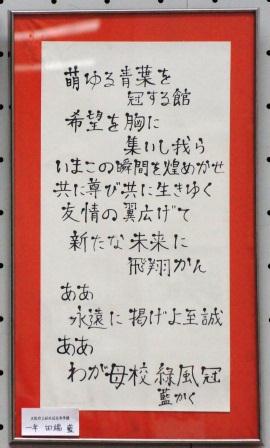 萌ゆる青葉を
冠する館
希望を胸に
集いし我ら
いまこの瞬間を煌めかせ
共に尊び共に生きゆく
友情の翼広げて
新たな未来に
飛翔かん
ああ
永遠に掲げよ至誠
ああ
わが母校緑風冠
藍かく
一年 田端 藍